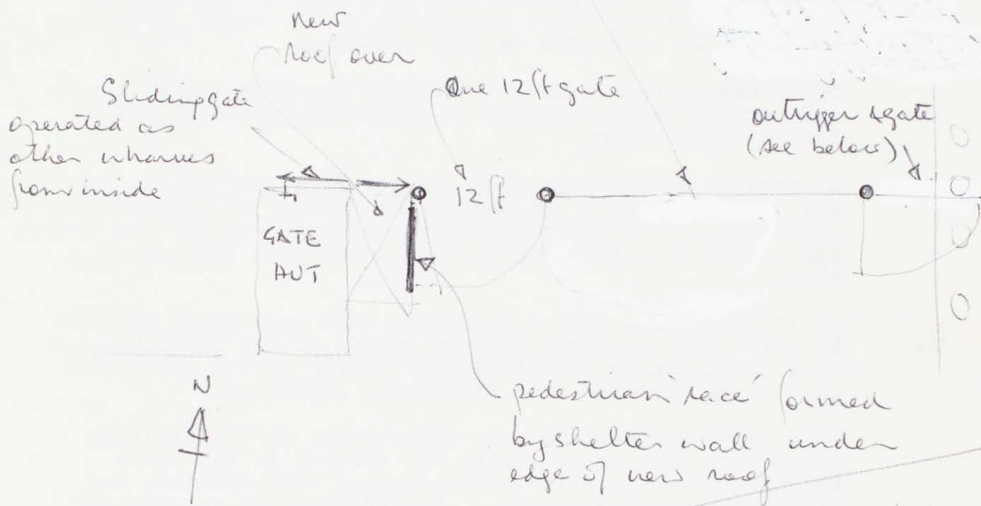 New
roof over
Sliding gate
operated as
other wharves
from inside
One 12ft gate
outrigger & gate
(see below)
12ft
GATE
HUT
N
pedestrian 'race' formed
by shelter wall under
edge of new roof